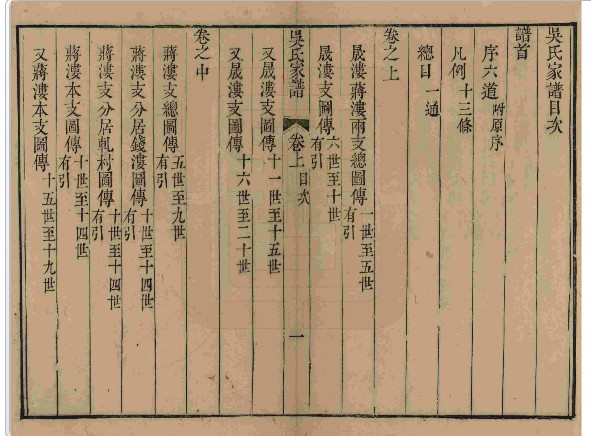 吳氏家譜目次
譜首
序六道 附原序
凡例 十三條
總目 一通
卷之上
晟漊蔣漊兩支總圖傳 一世至五世 有引
晟漊支圖傳 六世至十世 有引
吳氏家譜 卷上目次 一
又晟漊支圖傳 十一世至十五世
又晟漊支圖傳 十六世至二十世
卷之中
蔣漊支總圖傳 五世至九世 有引
蔣漊支分居錢漊圖傳 十世至十四世 有引
蔣漊支分居軋村圖傳 十世至十四世 有引
蔣漊本支圖傳 十世至十四世 有引
又蔣漊本支圖傳 十五世至十九世